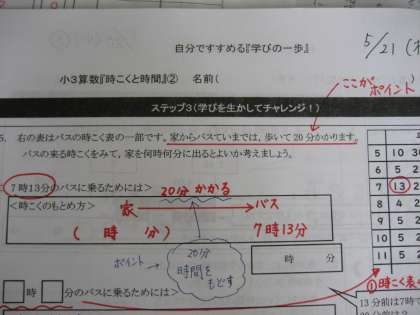 自分ですすめる『学びの一歩』
5/21
小3算数『時こくと時間』② 名前(
ここがポイント
ステップ3(学びを生かしてチャレンジ!)
5. 右の表はバスの時こく表の一部です。家からバスていまでは、歩いて20分かかります。
バスの来る時こくをみて、家を何時何分に出るとよいか考えましょう。
7時13分のバスに乗るためには>
20分かかる
<時こくのもとめ方>
家 バス
( 時 分) 7時13分
ポイント
20分
時間を
もどす
時 分
時 分のバスに乗るためには>
5 10 30
6 5 2
7 13
8 4 2
9 5
10 5
11 5
①時こく表
13分前は7時